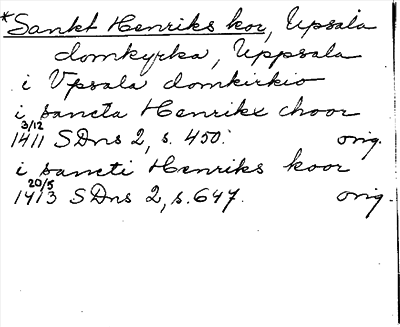 *Sankt Henriks kor, Upsala
domkyrka, Uppsala
i Vpsala domkirkio
i sancta Henrikx choor
3/12 1411 SDns 2, s. 450. orig.
i sancti Henriks koor
20/5 1413 SDns 2, s. 647. orig.